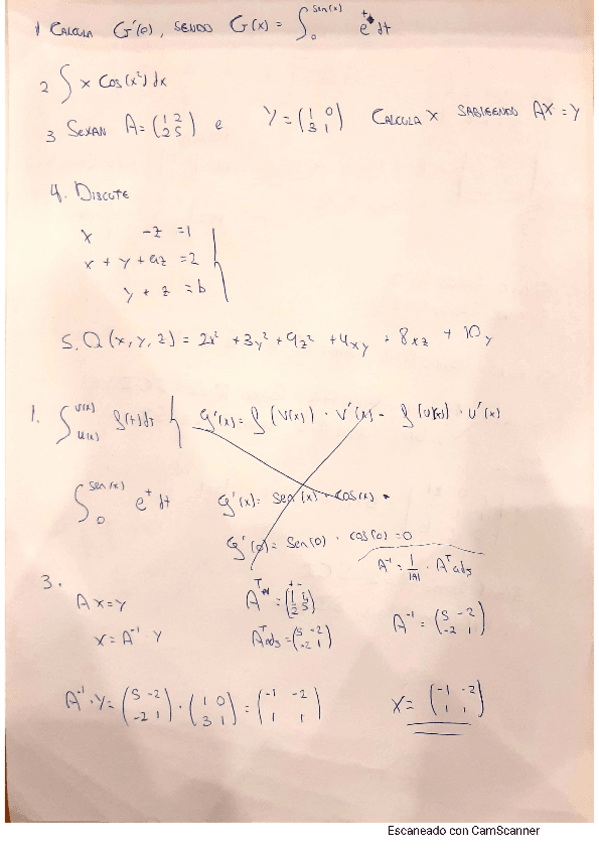 1 CALCULA G'(0), SENDO G(x) = ∫₀^sen(x) e^t dt
2 ∫ x Cos(x²) dx
3 SEXAN A = (1 2 / 2 5) e Y = (1 0 / 3 1) CALCULA X SABIEENDO AX = Y
4. DISCUTE
x -z = 1
x + y + az = 2
y + z = b
5. Q(x, y, z) = 2x² + 3y² + 9z² + 4xy + 8xz + 10y
1. ∫_u(x)^v(x) f(t) dt } G'(x) = f(v(x)) · v'(x) - f(u(x)) · u'(x)
∫₀^sen(x) e^t dt G'(x) = sen(x) · cos(x) ·
G'(0) = sen(0) · cos(0) = 0
A⁻¹ = 1/|A| · A^T adj
3.
AX = Y
X = A⁻¹ Y
A^T adj = (5 -2 / -2 1)
A⁻¹ = (5 -2 / -2 1)
A⁻¹ · Y = (5 -2 / -2 1) · (1 0 / 3 1) = (-1 -2 / 1 1) X = (-1 -2 / 1 1)
Escaneado con CamScanner